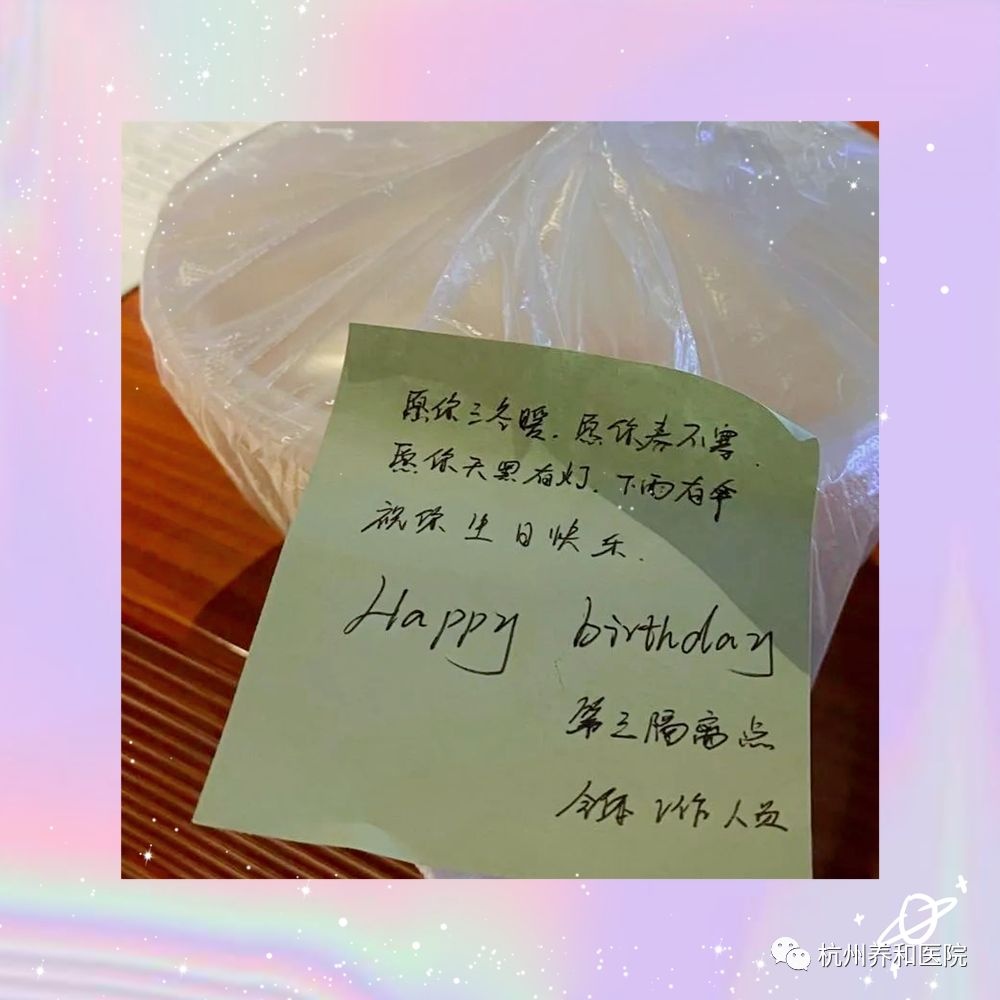 愿你三冬暖.愿你春不寒.
愿你天黑有灯.下雨有伞
祝你生日快乐.
Happy birthday
第三隔离点
全体工作人员
杭州养和医院